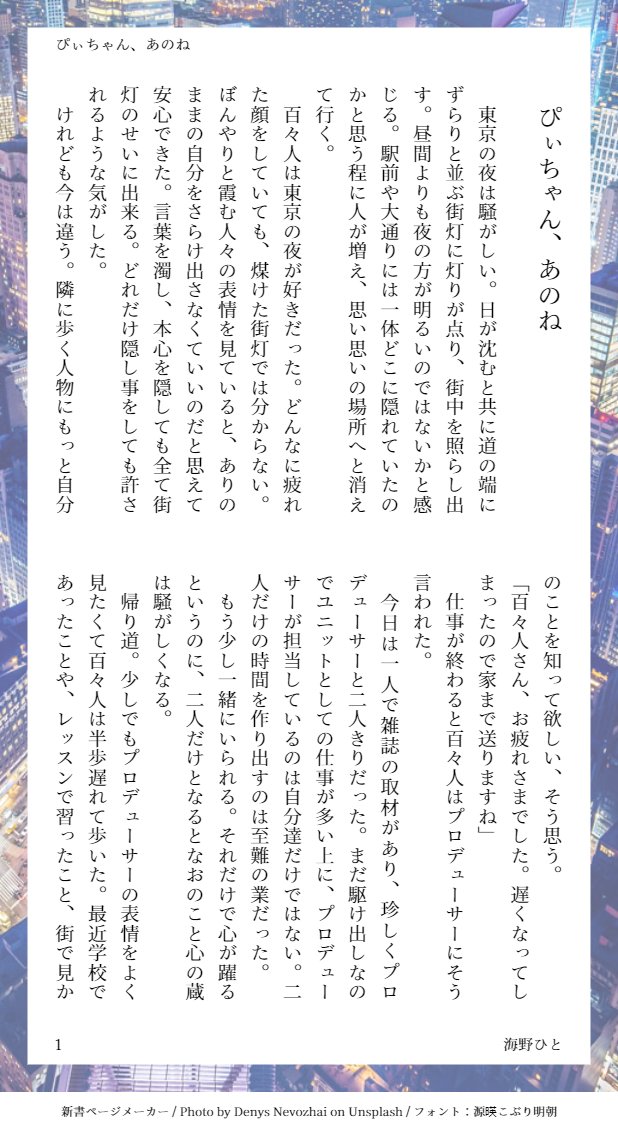 ぴぃちゃん、あのね
ぴぃちゃん、あのね
　東京の夜は騒がしい。日が沈むと共に道の端に
ずらりと並ぶ街灯に灯りが点り、街中を照らし出
す。昼間よりも夜の方が明るいのではないかと感
じる。駅前や大通りには一体どこに隠れていたの
かと思う程に人が増え、思い思いの場所へと消え
て行く。
　百々人は東京の夜が好きだった。どんなに疲れ
た顔をしていても、煤けた街灯では分からない。
ぼんやりと霞む人々の表情を見ていると、ありの
ままの自分をさらけ出さなくていいのだと思えて
安心できた。言葉を濁し、本心を隠しても全て街
灯のせいに出来る。どれだけ隠し事をしても許さ
れるような気がした。
　けれども今は違う。隣に歩く人物にもっと自分
のことを知って欲しい、そう思う。
「百々人さん、お疲れさまでした。遅くなってし
まったので家まで送りますね」
　仕事が終わると百々人はプロデューサーにそう
言われた。
　今日は一人で雑誌の取材があり、珍しくプロ
デューサーと二人きりだった。まだ駆け出しなの
でユニットとしての仕事が多い上に、プロデュー
サーが担当しているのは自分達だけではない。二
人だけの時間を作り出すのは至難の業だった。
　もう少し一緒にいられる。それだけで心が躍る
というのに、二人だけとなるとなおのこと心の蔵
は騒がしくなる。
　帰り道。少しでもプロデューサーの表情をよく
見たくて百々人は半歩遅れて歩いた。最近学校で
あったことや、レッスンで習ったこと、街で見か
1
海野ひと
新書ページメーカー / Photo by Denys Nevozhai on Unsplash / フォント：源暎こぶり明朝